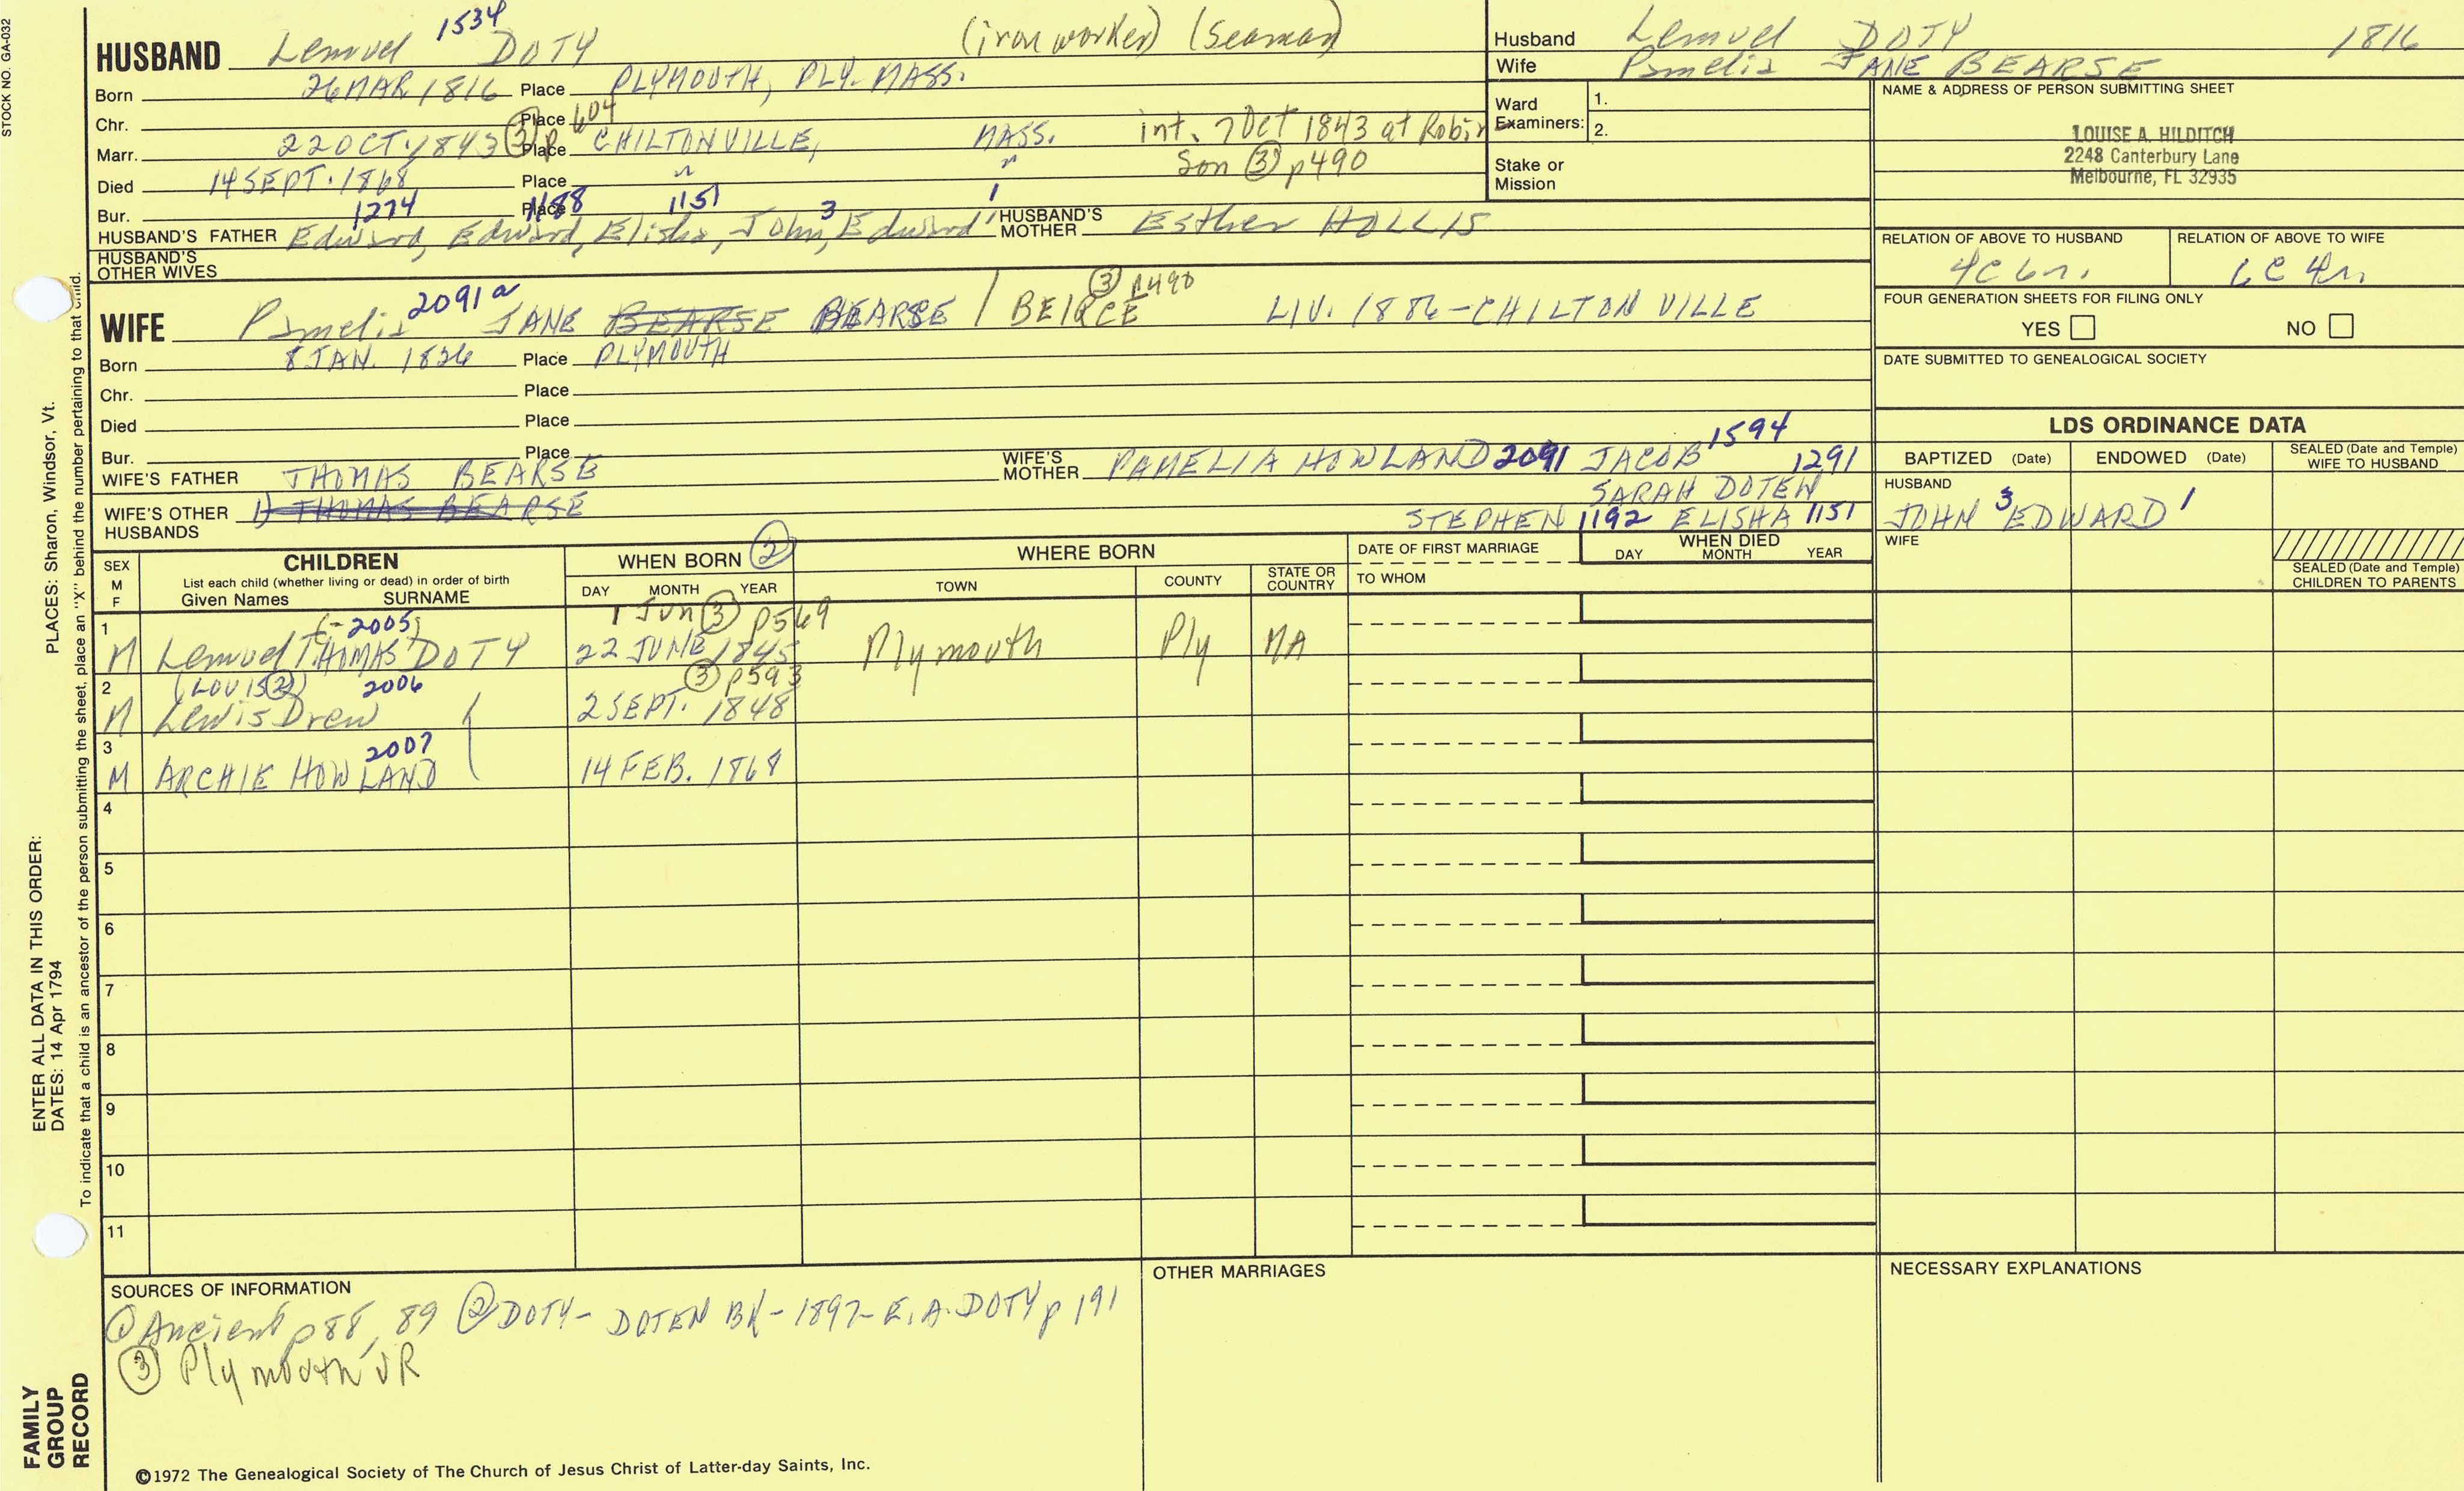 STOCK NO. GA-032
1534
HUSBAND Lemuel DOTY (iron worker) (Seaman)
Born 26 MAR 1816 Place PLYMOUTH, PLY. MASS.
Chr. Place
Marr. 22 OCT. 1843 ③ p 604 Place CHILTONVILLE, MASS. int. 7 Oct 1843 at Robin
son ③ p490
Died 14 SEPT. 1868 Place " "
Bur. Place
1274 1188 1151 3 1
HUSBAND'S FATHER Edward, Edward, Elisha, John, Edward HUSBAND'S MOTHER Esther HOLLIS
HUSBAND'S OTHER WIVES
Husband Lemuel DOTY 1816
Wife Pamelia JANE BEARSE
Ward Examiners: 1.
2.
Stake or Mission
NAME & ADDRESS OF PERSON SUBMITTING SHEET
LOUISE A. HILDITCH
2248 Canterbury Lane
Melbourne, FL 32935
RELATION OF ABOVE TO HUSBAND RELATION OF ABOVE TO WIFE
4C 6r. 6C 4r.
FOUR GENERATION SHEETS FOR FILING ONLY
YES NO
DATE SUBMITTED TO GENEALOGICAL SOCIETY
2091a ③ p490
WIFE Pamelia JANE BEARSE BEARSE / BEIRCE LIV. 1886-CHILTONVILLE
Born 8 JAN. 1826 Place PLYMOUTH
Chr. Place
Died Place
Bur. Place
WIFE'S FATHER THOMAS BEARSE WIFE'S MOTHER PAMELIA HOWLAND 2091 JACOB 1594 1291
SARAH DOTEN
WIFE'S OTHER HUSBANDS 1) THOMAS BEARSE
STEPHEN 1192 ELISHA 1151 JOHN 3 EDWARD 1
LDS ORDINANCE DATA
BAPTIZED (Date) ENDOWED (Date) SEALED (Date and Temple) WIFE TO HUSBAND
HUSBAND
WIFE
SEALED (Date and Temple) CHILDREN TO PARENTS
SEX M F CHILDREN WHEN BORN ② WHERE BORN DATE OF FIRST MARRIAGE WHEN DIED
List each child (whether living or dead) in order of birth
Given Names SURNAME DAY MONTH YEAR TOWN COUNTY STATE OR COUNTRY TO WHOM DAY MONTH YEAR
1 (-2005) 1 Jun ③ p569
M Lemuel THOMAS DOTY 22 JUNE 1845 Plymouth Ply MA
2 (LOUIS②) 2006 ③ p593
M Lewis Drew 2 SEPT. 1848
3 2007
M ARCHIE HOWLAND 14 FEB. 1868
4
5
6
7
8
9
10
11
SOURCES OF INFORMATION
① Ancient p88, 89 ② DOTY- DOTEN BK-1897-E.A. DOTY p 191
③ Plymouth VR
OTHER MARRIAGES
NECESSARY EXPLANATIONS
©1972 The Genealogical Society of The Church of Jesus Christ of Latter-day Saints, Inc.
FAMILY GROUP RECORD
ENTER ALL DATA IN THIS ORDER:
DATES: 14 Apr 1794
PLACES: Sharon, Windsor, Vt.
To indicate that a child is an ancestor of the person submitting the sheet, place an "X" behind the number pertaining to that child.